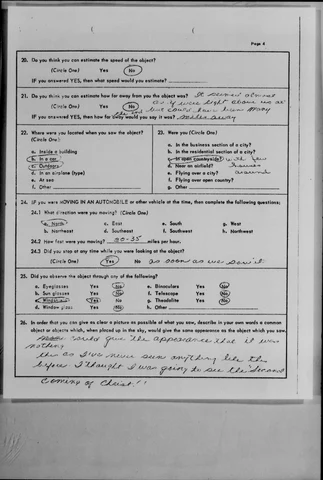 Page 4
20. Do you think you can estimate the speed of the object?
(Circle One) Yes No
IF you answered YES, then what speed would you estimate?
21. Do you think you can estimate how far away from you the object was? It seemed almost
(Circle One) Yes No as if were right above us at
the time but could have been many
IF you answered YES, then how far away would you say it was? miles away
22. Where were you located when you saw the object?
(Circle One)
a. Inside a building
b. In a car
c. Outdoors
d. In an airplane (type)
e. At sea
f. Other
23. Were you (Circle One)
a. In the business section of a city?
b. In the residential section of a city?
c. In open countryside? with few
d. Near an airfield? houses
e. Flying over a city? around
f. Flying over open country?
g. Other
24. IF you were MOVING IN AN AUTOMOBILE or other vehicle at the time, then complete the following questions:
24.1 What direction were you moving? (Circle One)
a. North c. East e. South g. West
b. Northeast d. Southeast f. Southwest h. Northwest
24.2 How fast were you moving? 30-35 miles per hour.
24.3 Did you stop at any time while you were looking at the object?
(Circle One) Yes No as soon as we saw it
25. Did you observe the object through any of the following?
a. Eyeglasses Yes No e. Binoculars Yes No
b. Sun glasses Yes No f. Telescope Yes No
c. Windshield Yes No g. Theodolite Yes No
d. Window glass Yes No h. Other
26. In order that you can give as clear a picture as possible of what you saw, describe in your own words a common
object or objects which, when placed up in the sky, would give the same appearance as the object which you saw.
nothing could give the appearance that it was
the as I've never seen anything like this
before I thought I was going to see the Second
Coming of Christ!!